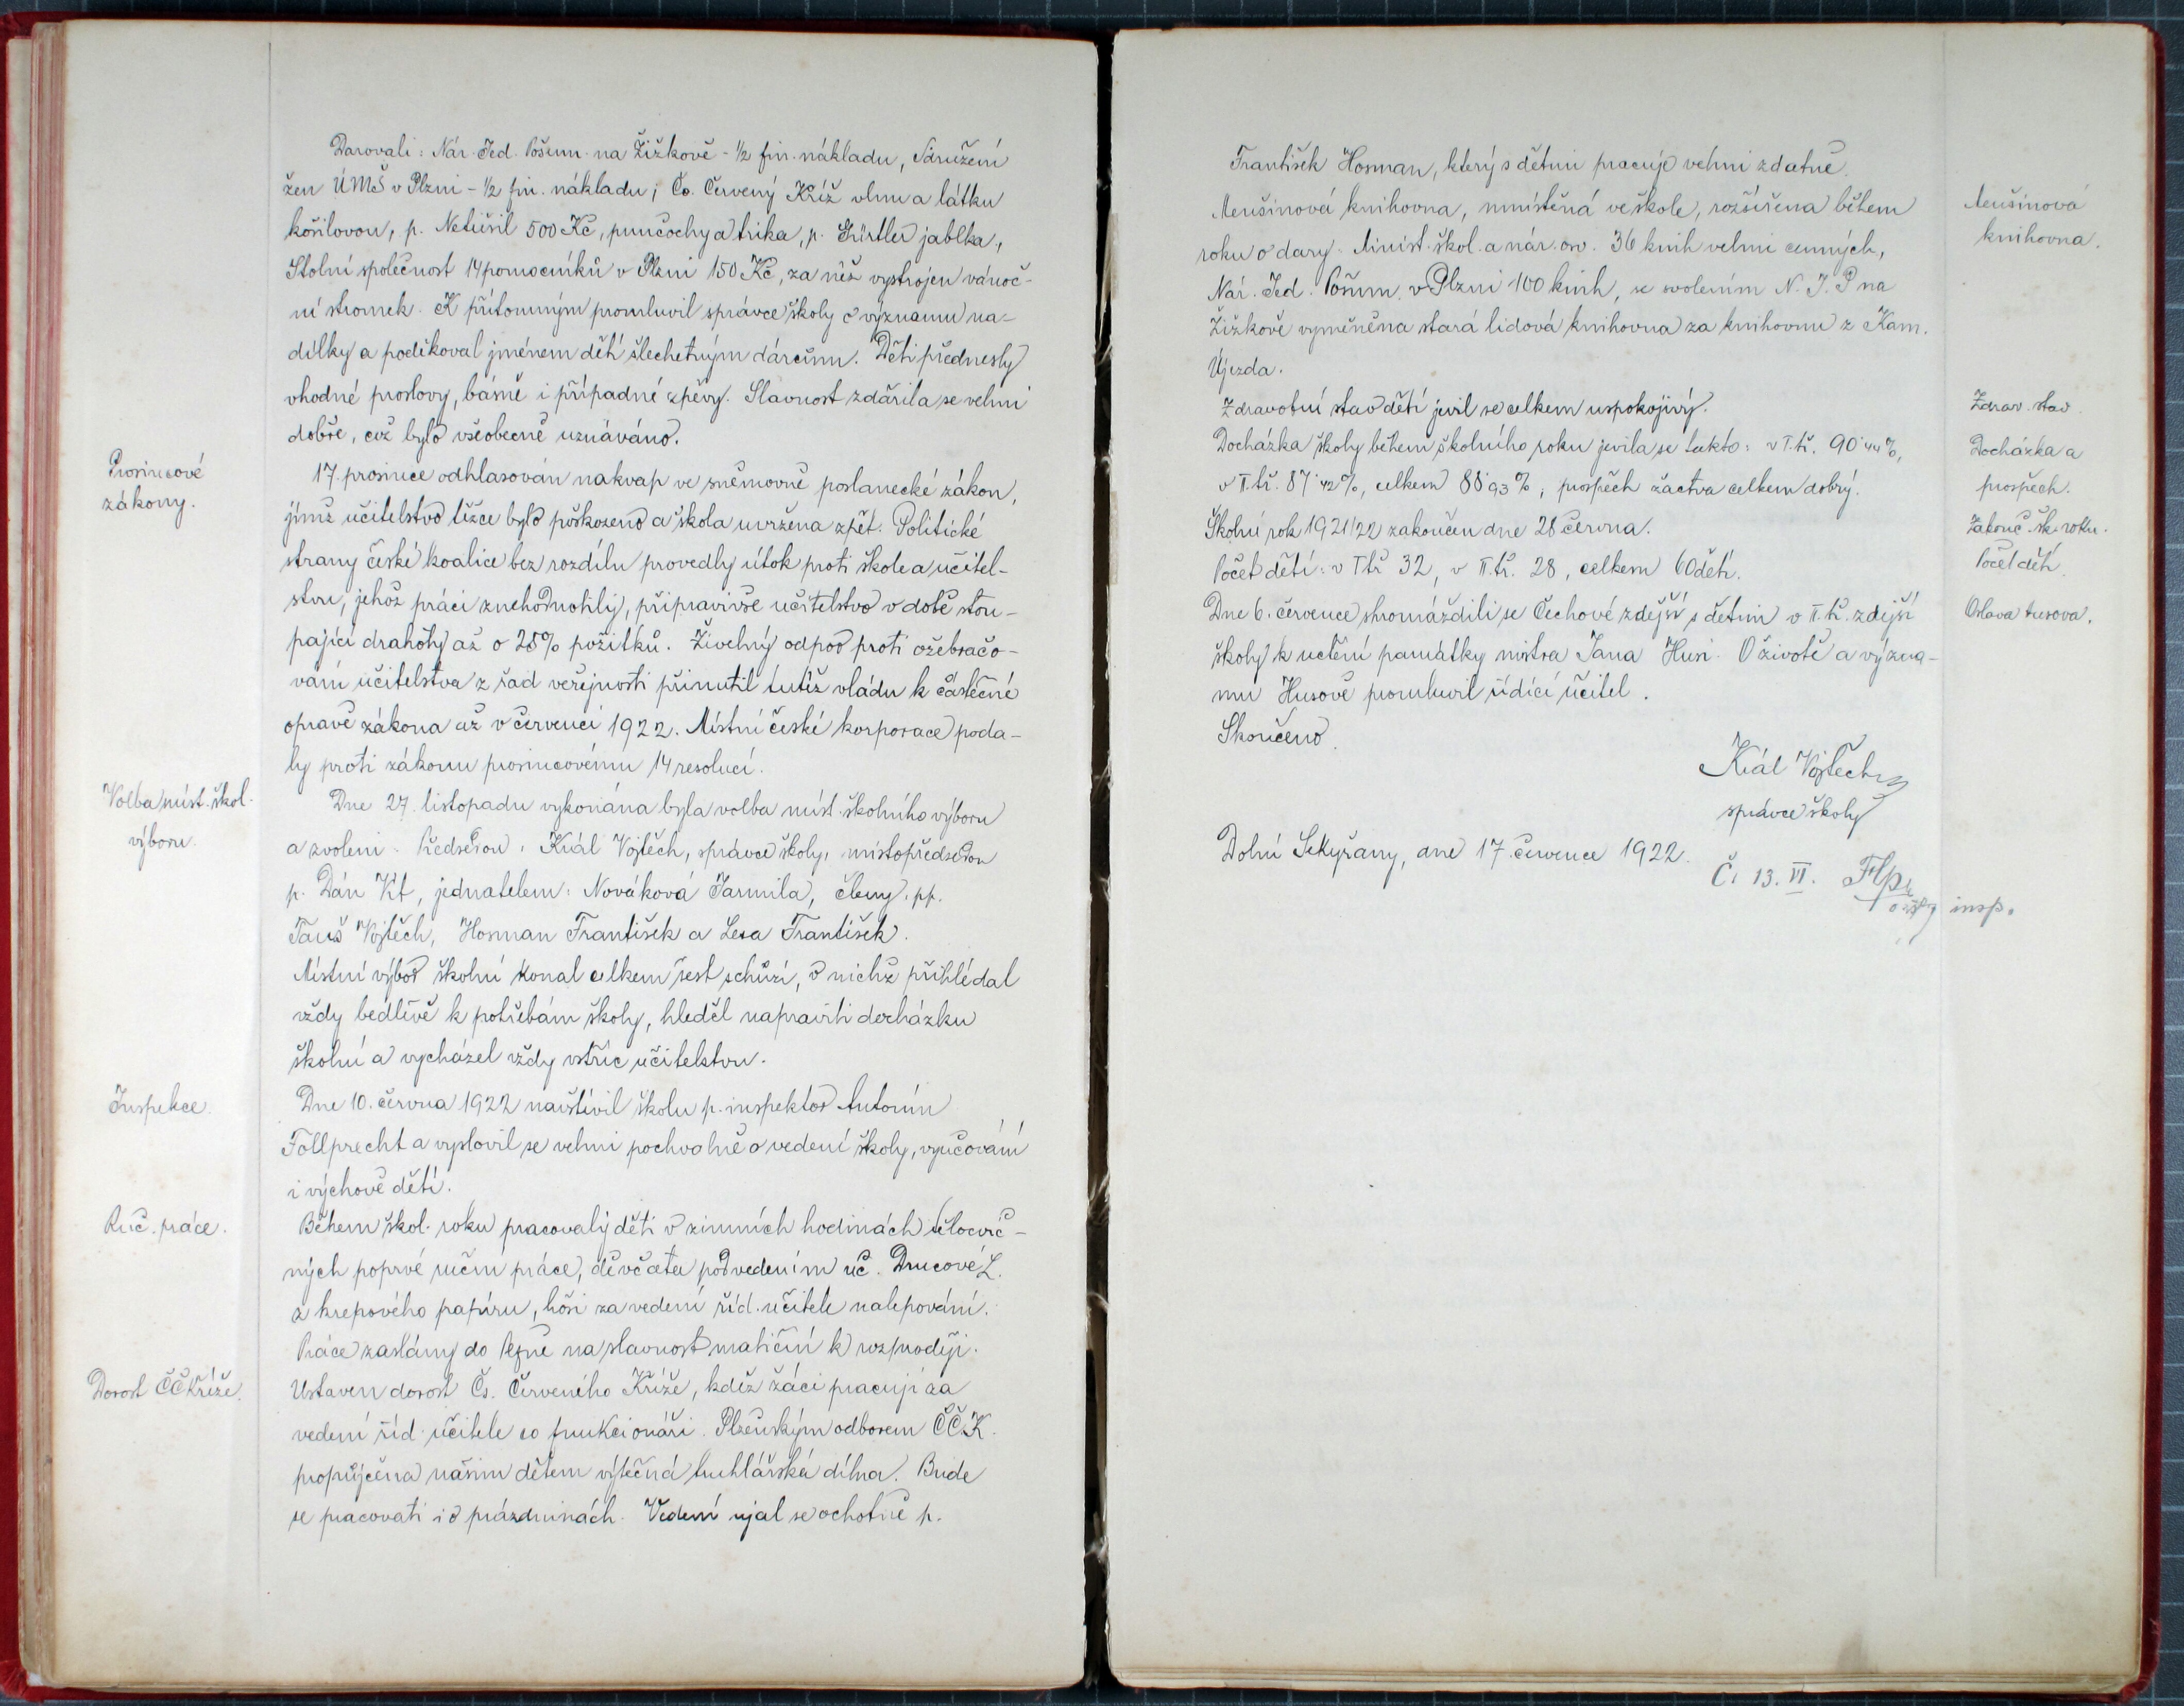 Darovali: Nár. Jed. Pošum. na Žižkově - ½ fin. nákladu, Sdružení
žen ÚMŠ v Plzni - ½ fin. nákladu; Čs. Červený Kříž vlnu a látku
košilovou, p. Netušil 500 Kč, punčochy a trika, p. Gürtler jablka,
Stolní společnost 14 pomocníků v Plzni 150 Kč, za něž vystrojen vánoč-
ní stromek. K přítomným promluvil správce školy o významu na-
dílky a poděkoval jménem dětí šlechetným dárcům. Děti přednesly
vhodné proslovy, básně i případné zpěvy. Slavnost zdařila se velmi
dobře, což bylo všeobecně uznáváno.
Prosincové
zákony.
17. prosince odhlasován nakvap ve sněmovně poslanecké zákon,
jímž učitelstvo těžce bylo poškozeno a škola uvržena zpět. Politické
strany české koalice bez rozdílu provedly útok proti škole a učitel-
stvu, jehož práci znehodnotily, připravivše učitelstvo v době stou-
pající drahoty až o 25% požitků. Živelný odpor proti ožebračo-
vání učitelstva z řad veřejnosti přinutil tutéž vládu k částečné
opravě zákona až v červenci 1922. Místní české korporace poda-
ly proti zákonu prosincovému 14 resolucí.
Volba míst. škol.
výboru.
Dne 27. listopadu vykonána byla volba míst. školního výboru
a zvoleni: Předsedou: Král Vojtěch, správce školy, místopředsedou
p. Dán Vít, jednatelem: Nováková Jarmila, členy: pp.
Tauš Vojtěch, Hosman František a Lesa František.
Místní výbor školní konal celkem šest schůzí, v nichž přihlédal
vždy bedlivě k potřebám školy, hleděl napraviti docházku
školní a vycházel vždy vstříc učitelstvu.
Inspekce.
Dne 10. června 1922 navštívil školu p. inspektor Antonín
Follprecht a vyslovil se velmi pochvalně o vedení školy, vyučování
i výchově dětí.
Ruč. práce.
Během škol. roku pracovaly děti v zimních hodinách tělocvič-
ných poprvé ruční práce, děvčata pod vedením uč. Drucové L.
z krepového papíru, hoši za vedení říd. učitele nalepování.
Práce zaslány do Plzně na slavnost matiční k rozprodeji.
Dorost ČČKříže.
Ustaven dorost Čs. Červeného Kříže, kdež žáci pracují za
vedení říd. učitele co funkcionáři. Plzeňským odborem ČČK.
propůjčena našim dětem výtečná truhlářská dílna. Bude
se pracovati i o prázdninách. Vedení ujal se ochotně p.
František Hosman, který s dětmi pracuje velmi zdatně.
Menšinová
knihovna.
Menšinová knihovna, umístěná ve škole, rozšířena během
roku o dary. Minist. škol. a nár. osv. 36 knih velmi cenných,
Nár. Jed. Pošum. v Plzni 100 knih, se svolením N. J. P. na
Žižkově vyměněna stará lidová knihovna za knihovnu z Kam.
Újezda.
Zdrav. stav.
Zdravotní stav dětí jevil se celkem uspokojivý.
Docházka a
prospěch.
Docházka školy během školního roku jevila se takto: v I. tř. 90·44%,
v II. tř. 87·42%, celkem 88·93%; prospěch žactva celkem dobrý.
Zakonč. šk. roku.
Školní rok 1921/22 zakončen dne 28. června.
Počet dětí.
Počet dětí: v I tř. 32, v II. tř. 28, celkem 60 dětí.
Oslava Husova.
Dne 6. července shromáždili se Čechové zdejší s dětmi v II. tř. zdejší
školy k uctění památky mistra Jana Husi. O životě a význa-
mu Husově promluvil řídící učitel.
Skončeno.
Král Vojtěch
správce školy
Dolní Sekyřany, dne 17. července 1922.
Č. 13. VI.
insp.